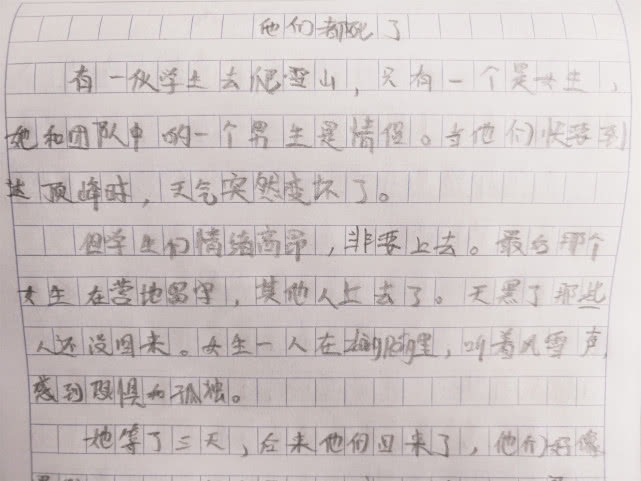 他们都死了
有一伙学生去爬雪山，只有一个是女生，
她和团队中的一个男生是情侣。当他们快要到
达顶峰时，天气突然变坏了。
但学生们情绪高昂，非要上去。最后那个
女生在营地留守，其他人上去了。天黑了那些
人还没回来。女生一人在里，听着风雪声，
感到恐惧和孤独。
她等了三天，后来他们回来了，他们好像